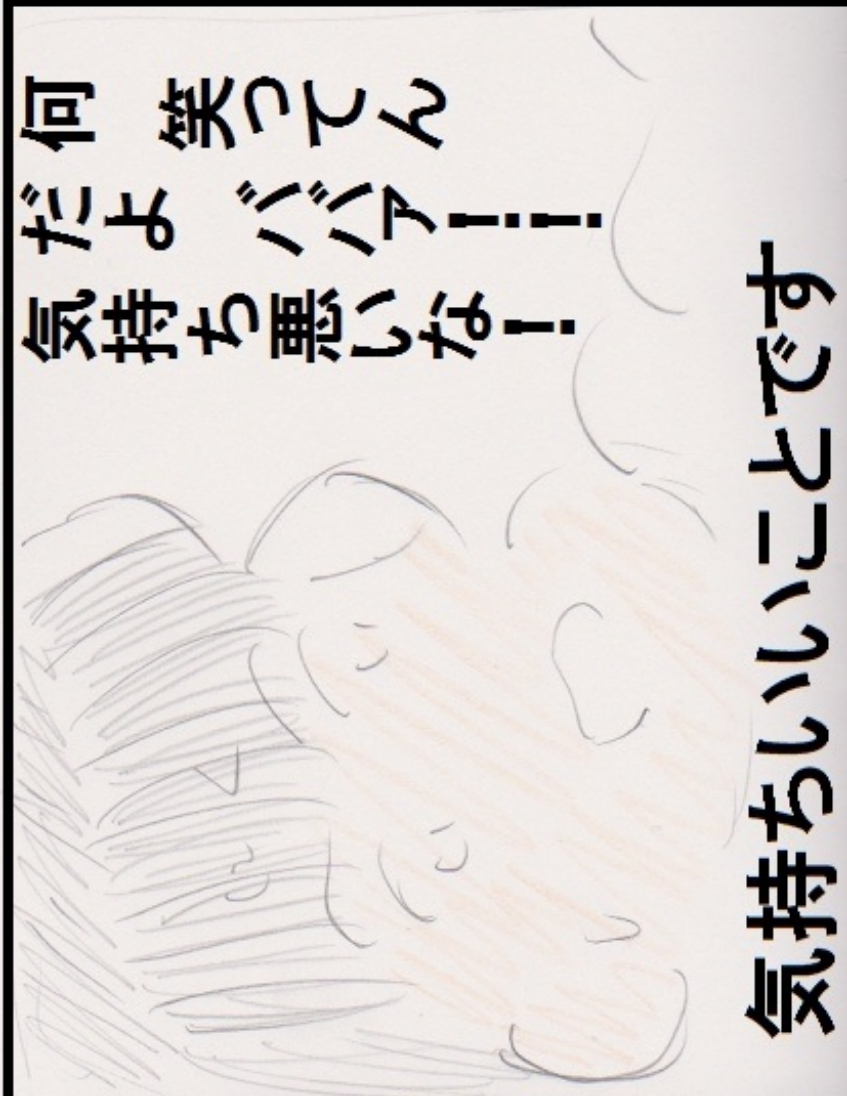 何 笑ってん
だよ ババァ！！
気持ち悪いな！
気持ちいいことです